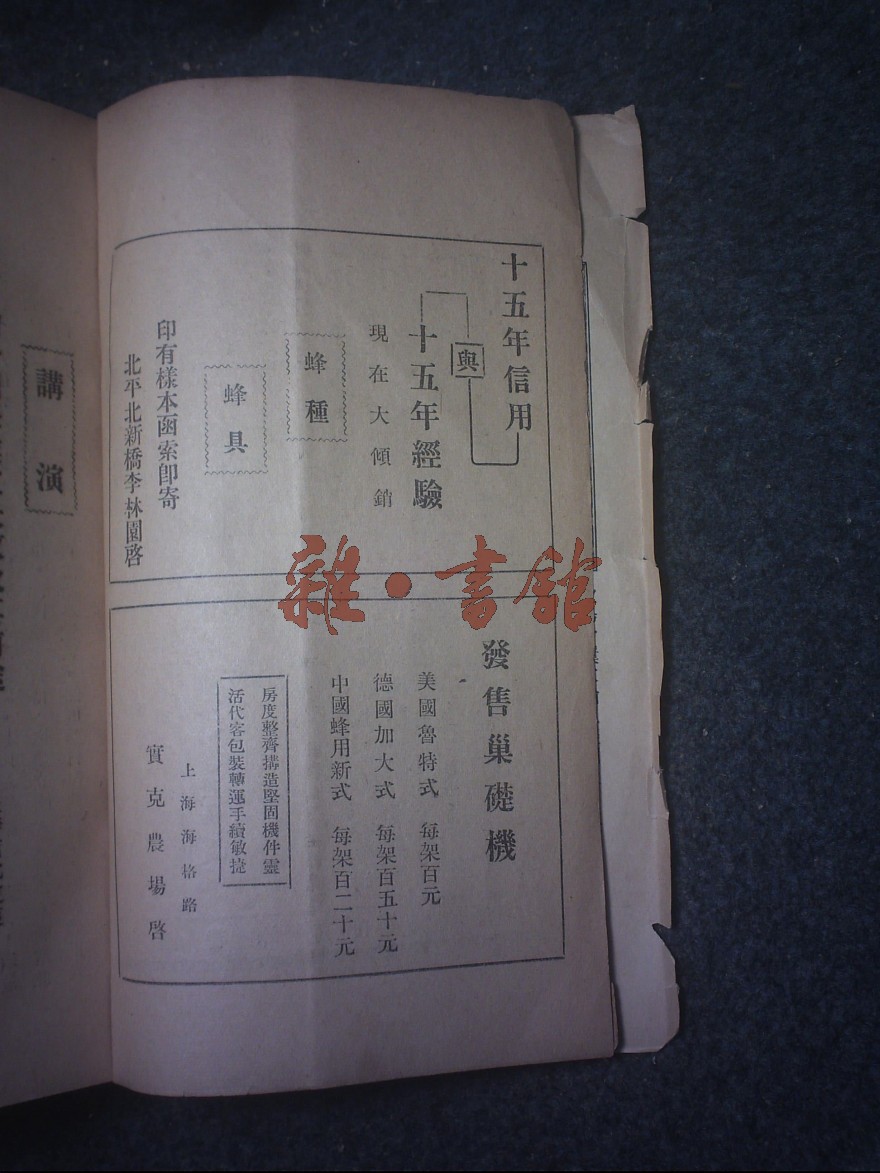 十五年信用
與
十五年經驗
現在大傾銷
蜂種
蜂具
印有樣本函索卽寄
北平北新橋李林園啓
發售巢礎機
美國魯特式 每架百元
德國加大式 每架百五十元
中國蜂用新式 每架百二十元
房度整齊搆造堅固機件靈
活代客包裝轉運手續敏捷
上海海格路
實克農場啓
講演
雜·書館